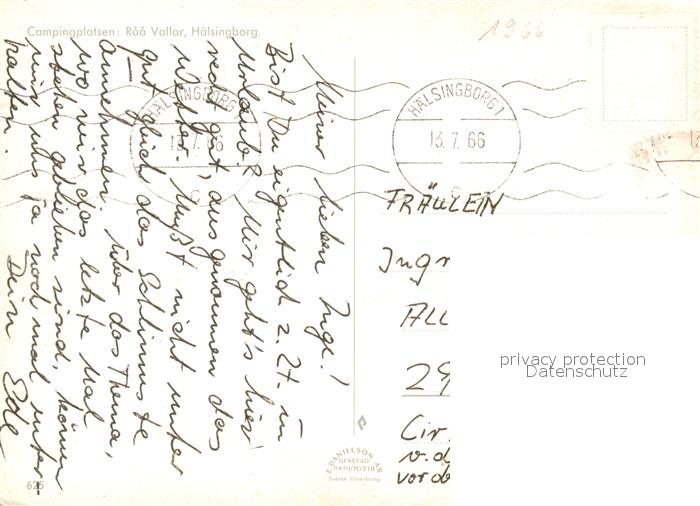 Campingplatsen: Råå Vallar, Hälsingborg.
1966
Meiner lieben Inge!
Bist Du eigentlich z. Zt. in
Urlaub? Mir geht's hier
recht gut, ausgenommen das
Wetter. Mußt nicht unter
gut gleich das Schlimmste
annehmen. Über das Thema,
wo wir das letzte Mal
stehen geblieben sind, können
wir uns ja noch mal unter-
halten.
Dein Ede
HÄLSINGBORG 1
13.7.66
C
HÄLSINGBORG 1
13.7.66
C
FRÄULEIN
Ingr
ALL
29
Cir
v.d
vor de
privacy protection
Datenschutz
E. DANIELSON AB
GENEVAD
0430/70218
Svensk tillverkning
625